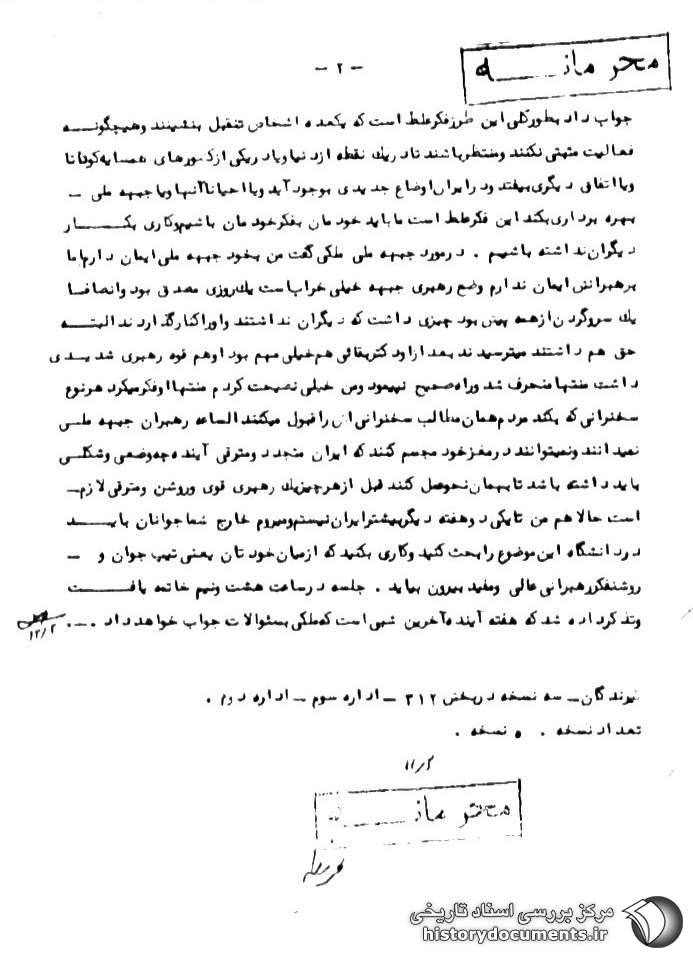 محرمانه
- ۲ -
جواب داد بطورکلی این طرزفکرغلط است که یکعده اشخاص تنفیل بنشینند وهیچگونه
فعالیت مثبتی نکنند ومنتظرباشند تادریك نقطه ازدنیا ویادریکی ازکشورهای همسایه کودتا
ویااتفاق دیگری بیفتد ودرایران اوضاع جدیدی بوجود آید ویا احیاناآنها ویاجبهه ملی -
بهره برداری بکند این فکرغلط است ما باید خودمان بفکرخودمان باشیم وکاری بکار
دیگران نداشته باشیم . درمورد جبهه ملی ملکی گفت من بخود جبهه ملی ایمان دارم اما
برهبرانش ایمان ندارم وضع رهبری جبهه خیلی خراب است یك روزی مصدق بود وانصافا
یك سروگردن ازهمه پیش بود چیزی داشت که دیگران نداشتند واوراکنارگذاردند البته
حق هم داشتند میترسیدند بعد ازاو دکتربقائی هم خیلی مهم بود اوهم قوه رهبری شدیدی
داشت منتها منحرف شد وراه صحیح نپیمود ومن خیلی نصیحت کردم منتها اوفکرمیکرد هرنوع
سخنرانی که بکند مردم همان مطالب سخنرانی اش راقبول میکنند الساعه رهبران جبهه ملی
نمیدانند ونمیتوانند درمغزخود مجسم کنند که ایران متجدد ومترقی آینده چه وضعی وشکلی
باید داشته باشد تابهمان نحوعمل کنند قبل ازهرچیزیك رهبری قوی وروشن ومترقی لازم-
است حالا هم من تایکی دوهفته دیگربیشترایران نیستم ومیروم خارج شما جوانان باید
دردانشگاه این موضوع رابحث کنید وکاری بکنید که ازمیان خودتان یعنی تیپ جوان و -
روشنفکررهبرانی عالی ومفید بیرون بیاید . جلسه درساعت هشت ونیم خاتمه یافت
وتذکرداده شد که هفته آینده آخرین شبی است که ملکی بسئوالات جواب خواهدداد . - .
۱۲/۲
گیرندگان - سه نسخه دربخش ۳۱۲ - اداره سوم - اداره دوم .
تعداد نسخه . ۵ نسخه .
۱۱/۲
محرمانه
مرکز بررسی اسناد تاریخی
historydocuments.ir